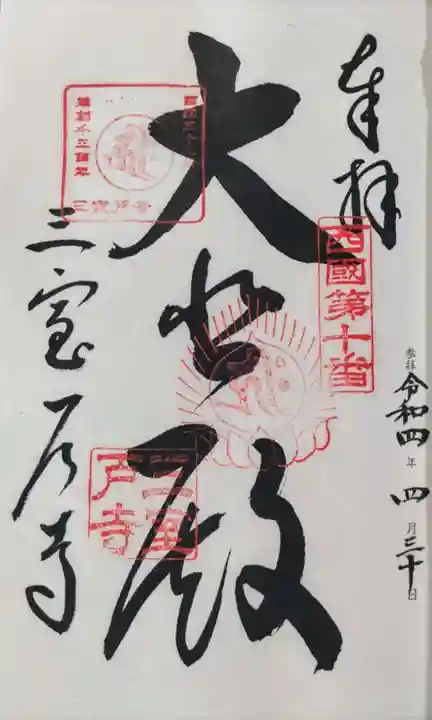 奉拝
西國第十番
参拝 令和四年 四月三十日
大悲殿
三室戸寺
三室戸寺